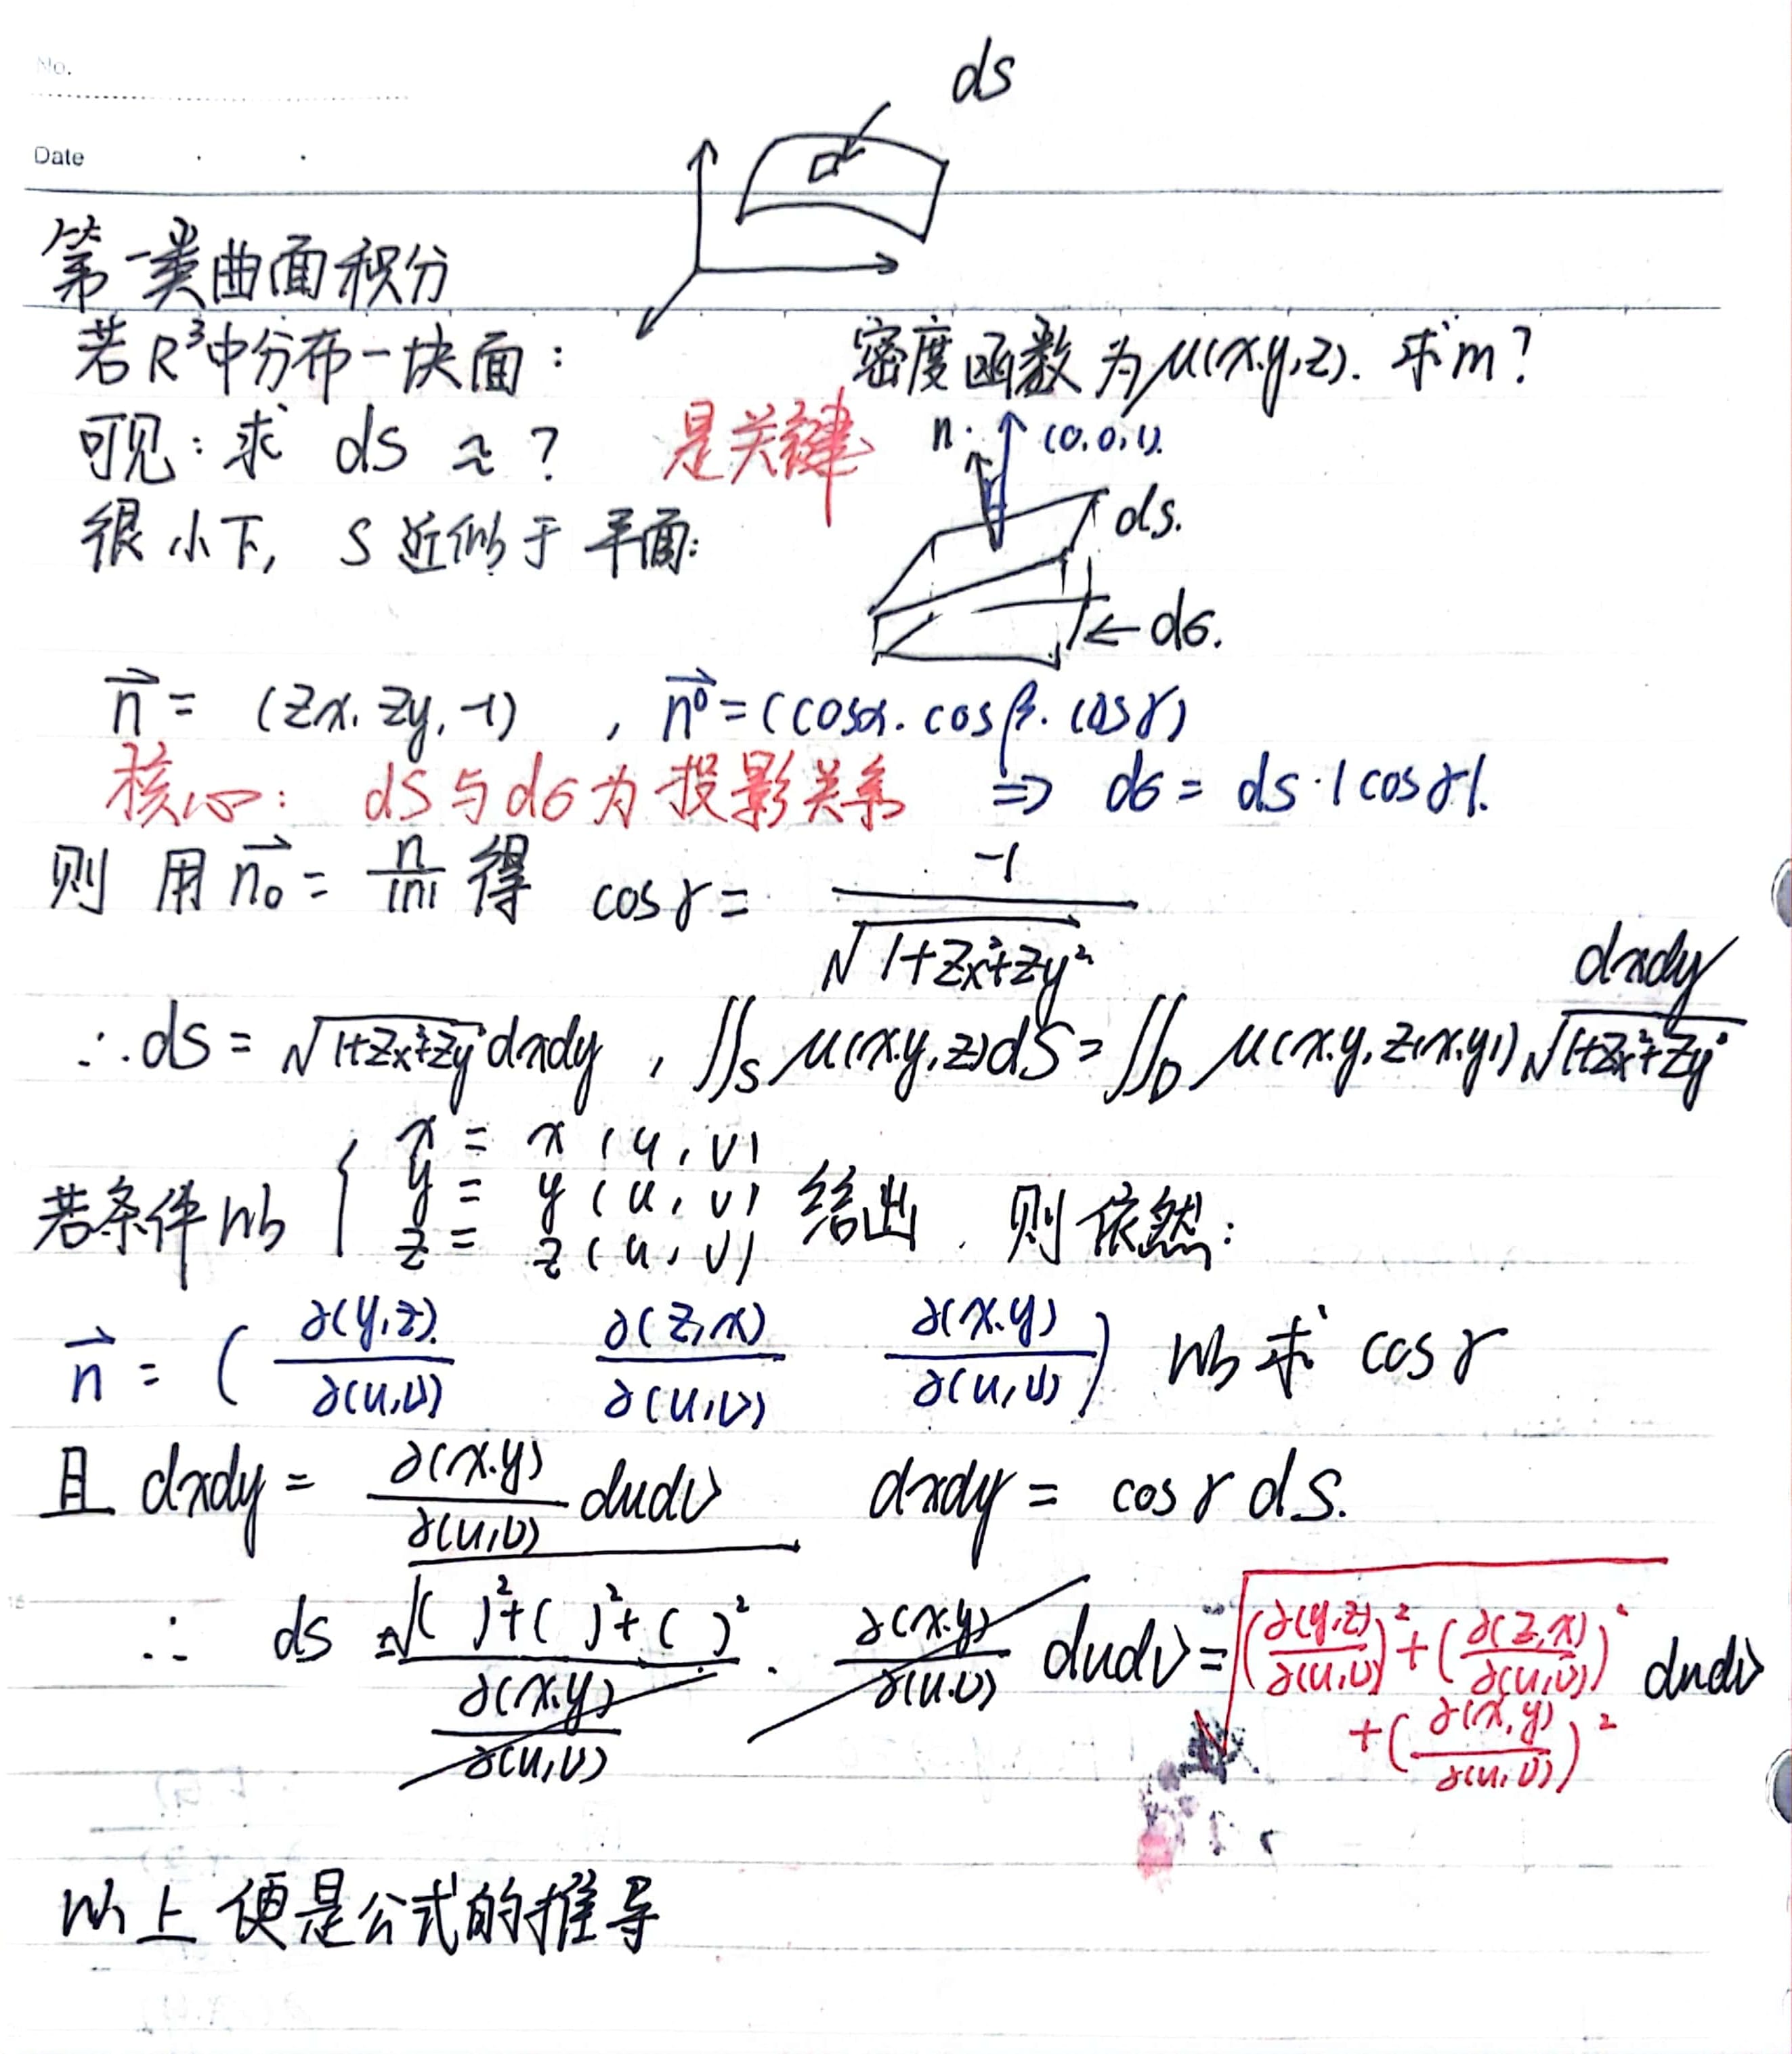 No.
Date
ds
第一类曲面积分
若R³中分布一块面: 密度函数为μ(x.y,z). 求m?
可见:求 ds ≈ ? 是关键
n. (0,0,1).
很小下, S近似于平面:
ds.
← dσ.
n⃗ = (Zx, Zy, -1) , n⃗⁰ = (cosα. cosβ. cosγ)
核心: dS与dσ为投影关系 ⇒ dσ = ds·|cosγ|.
则 用 n⃗₀ = n/|n| 得 cosγ = -1/√(1+Zx²+Zy²)
∴ds = √(1+Zx²+Zy²) dxdy , ∬_S μ(x.y,z)dS = ∬_D μ(x.y, z(x.y)) √(1+Zx²+Zy²) dxdy
若条件以 { x = x(u,v)
y = y(u,v)
z = z(u,v) 给出. 则依然:
n⃗ = ( ∂(y,z)/∂(u,v) ∂(z,x)/∂(u,v) ∂(x.y)/∂(u,v) ) 以求 cosγ
且 dxdy = ∂(x.y)/∂(u,v) dudv dxdy = cosγ ds.
∴ ds = √(( )²+( )²+( )²) / ∂(x.y)/∂(u,v) · ∂(x.y)/∂(u.v) dudv = √((∂(y,z)/∂(u,v))² + (∂(z,x)/∂(u,v))² + (∂(x,y)/∂(u,v))²) dudv
以上便是公式的推导